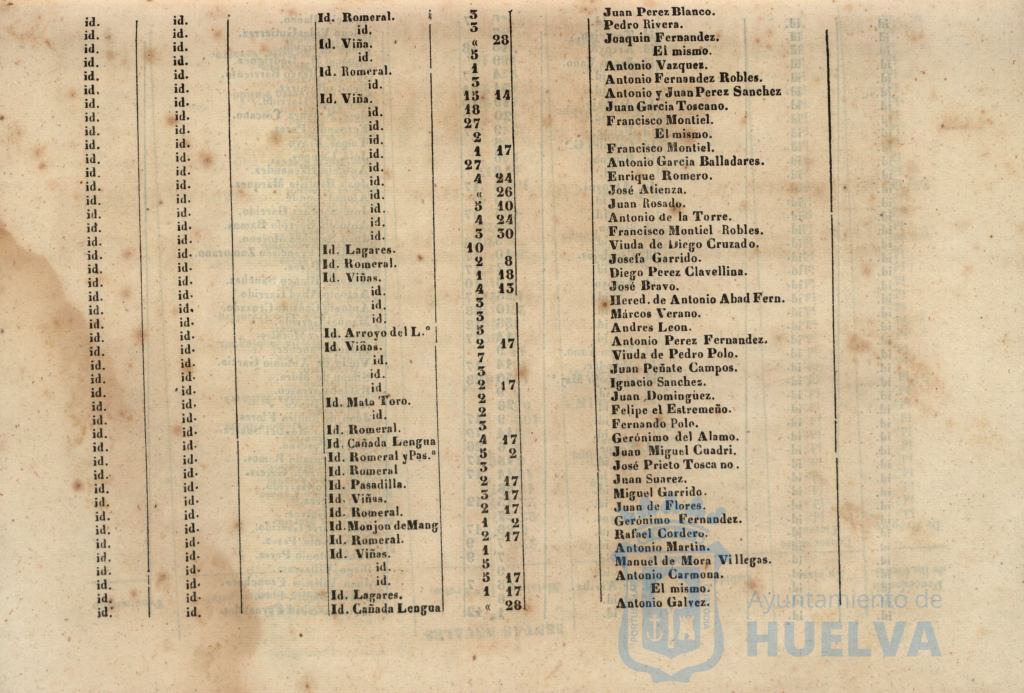 id. id. Id. Romeral. 3 Juan Perez Blanco.
id. id. id. 3 Pedro Rivera.
id. id. Id. Viña. « 28 Joaquin Fernandez.
id. id. id. 5 El mismo.
id. id. Id. Romeral. 1 Antonio Vazquez.
id. id. id. 3 Antonio Fernandez Robles.
id. id. Id. Viña. 15 14 Antonio y Juan Perez Sanchez
id. id. id. 18 Juan Garcia Toscano.
id. id. id. 27 Francisco Montiel.
id. id. id. 2 El mismo.
id. id. id. 1 17 Francisco Montiel.
id. id. id. 27 Antonio Garcia Balladares.
id. id. id. 4 24 Enrique Romero.
id. id. id. « 26 José Atienza.
id. id. id. 5 10 Juan Rosado.
id. id. id. 4 24 Antonio de la Torre.
id. id. id. 3 30 Francisco Montiel Robles.
id. id. Id. Lagares. 10 Viuda de Diego Cruzado.
id. id. Id. Romeral. 2 8 Josefa Garrido.
id. id. Id. Viñas. 1 18 Diego Perez Clavellina.
id. id. id. 4 13 José Bravo.
id. id. id. 3 Hered. de Antonio Abad Fern.
id. id. id. 3 Márcos Verano.
id. id. Id. Arroyo del L.º 5 Andres Leon.
id. id. Id. Viñas. 2 17 Antonio Perez Fernandez.
id. id. id. 7 Viuda de Pedro Polo.
id. id. id. 3 Juan Peñate Campos.
id. id. id. 2 17 Ignacio Sanchez.
id. id. Id. Mata Toro. 2 Juan Dominguez.
id. id. id. 2 Felipe el Estremeño.
id. id. Id. Romeral. 3 Fernando Polo.
id. id. Id. Cañada Lengua 4 17 Gerónimo del Alamo.
id. id. Id. Romeral y Pas.ª 5 2 Juan Miguel Cuadri.
id. id. Id. Romeral 3 José Prieto Toscano.
id. id. Id. Pasadilla. 2 17 Juan Suarez.
id. id. Id. Viñas. 3 17 Miguel Garrido.
id. id. Id. Romeral. 2 17 Juan de Flores.
id. id. Id. Monjon de Mang 1 2 Gerónimo Fernandez.
id. id. Id. Romeral. 2 17 Rafael Cordero.
id. id. Id. Viñas. 1 Antonio Martin.
id. id. id. 5 Manuel de Mora Villegas.
id. id. id. 5 17 Antonio Carmona.
id. id. Id. Lagares. 1 17 El mismo.
id. id. Id. Cañada Lengua « 28 Antonio Galvez.
Ayuntamiento de
HUELVA